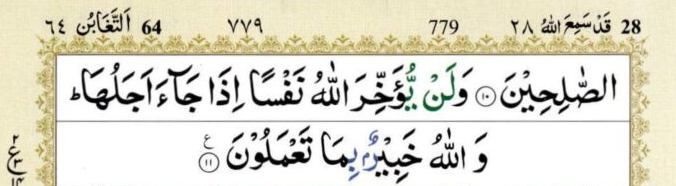 28 قَدْ سَمِعَ اللهُ ٢٨ 779 ٧٧٩ 64 اَلتَّغَابُن ٦٤
الصّٰلِحِيْنَ ۝١٠ وَلَنْ يُّؤَخِّرَ اللّٰهُ نَفْسًا اِذَا جَآءَ اَجَلُهَا ؕ
وَ اللّٰهُ خَبِيْرٌۢ بِمَا تَعْمَلُوْنَ ۝١١ ع
٢
ع
٣